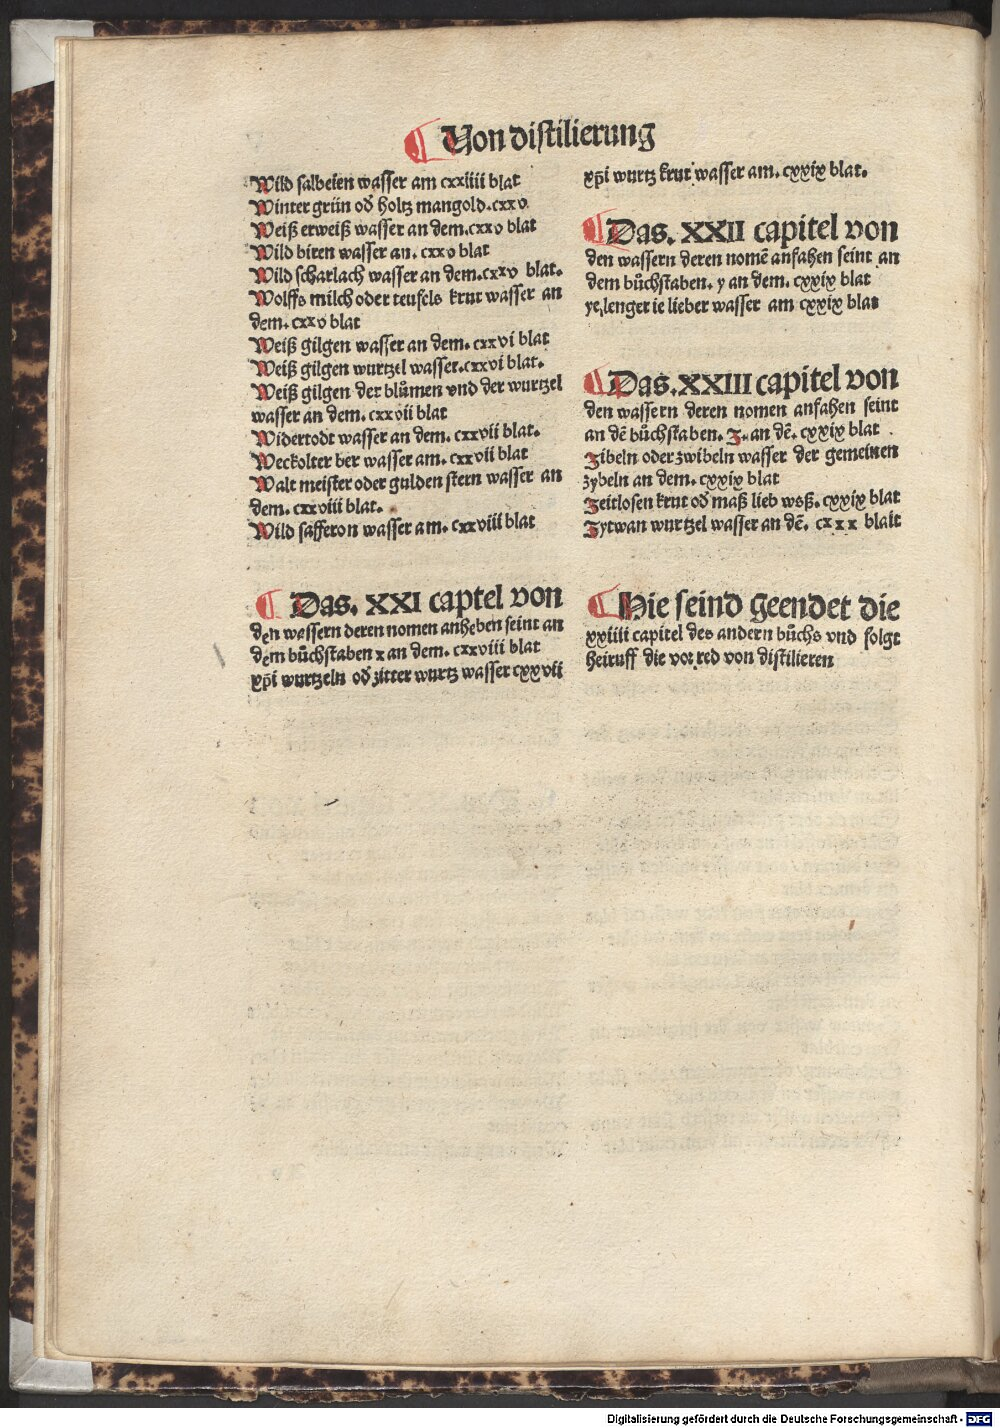 Von distilierung
Wild salbeien wasser am cxxiiii blat
Winter grün od̄ holtz mangold. cxxv
Weiß erweiß wasser an dem. cxxv blat
Wild biren wasser an. cxxv blat
Wild scharlach wasser an dem. cxxv blat.
Wolffs milch oder teufels krut wasser an
dem. cxxv blat
Weiß gilgen wasser an dem. cxxvi blat
Weiß gilgen wurtzel wasser. cxxvi blat.
Weiß gilgen der blůmen vnd der wurtzel
wasser an dem. cxxvii blat
Widertodt wasser an dem. cxxvii blat.
Weckolter ber wasser am. cxxvii blat
Walt meister oder gulden stern wasser an
dem. cxxviii blat.
Wild safferon wasser am. cxxviii blat
Das. XXI captel von
den wassern deren nomen anheben seint an
dem bůchstaben x an dem. cxxviii blat
xp̄i wurtzeln od̄ zitter wurtz wasser cxxvii
xp̄i wurtz krut wasser am. cxxix blat.
Das. XXII capitel von
den wassern deren nomē anfahen seint an
dem bůchstaben. y an dem. cxxix blat
ye lenger ie lieber wasser am cxxix blat
Das. XXIII capitel von
den wassern deren nomen anfahen seint
an dē bůchstaben. Z. an dē. cxxix blat
Zibeln oder zwibeln wasser der gemeinen
zybeln an dem. cxxix blat
Zeitlosen krut od̄ maß lieb wsß. cxxix blat
Zytwan wurtzel wasser an dē. cxxx blatt
Hie seind geendet die
xxiiii capitel des andern bůchs vnd folgt
heiruff die vorred von distilieren
Digitalisierung gefördert durch die Deutsche Forschungsgemeinschaft - DFG